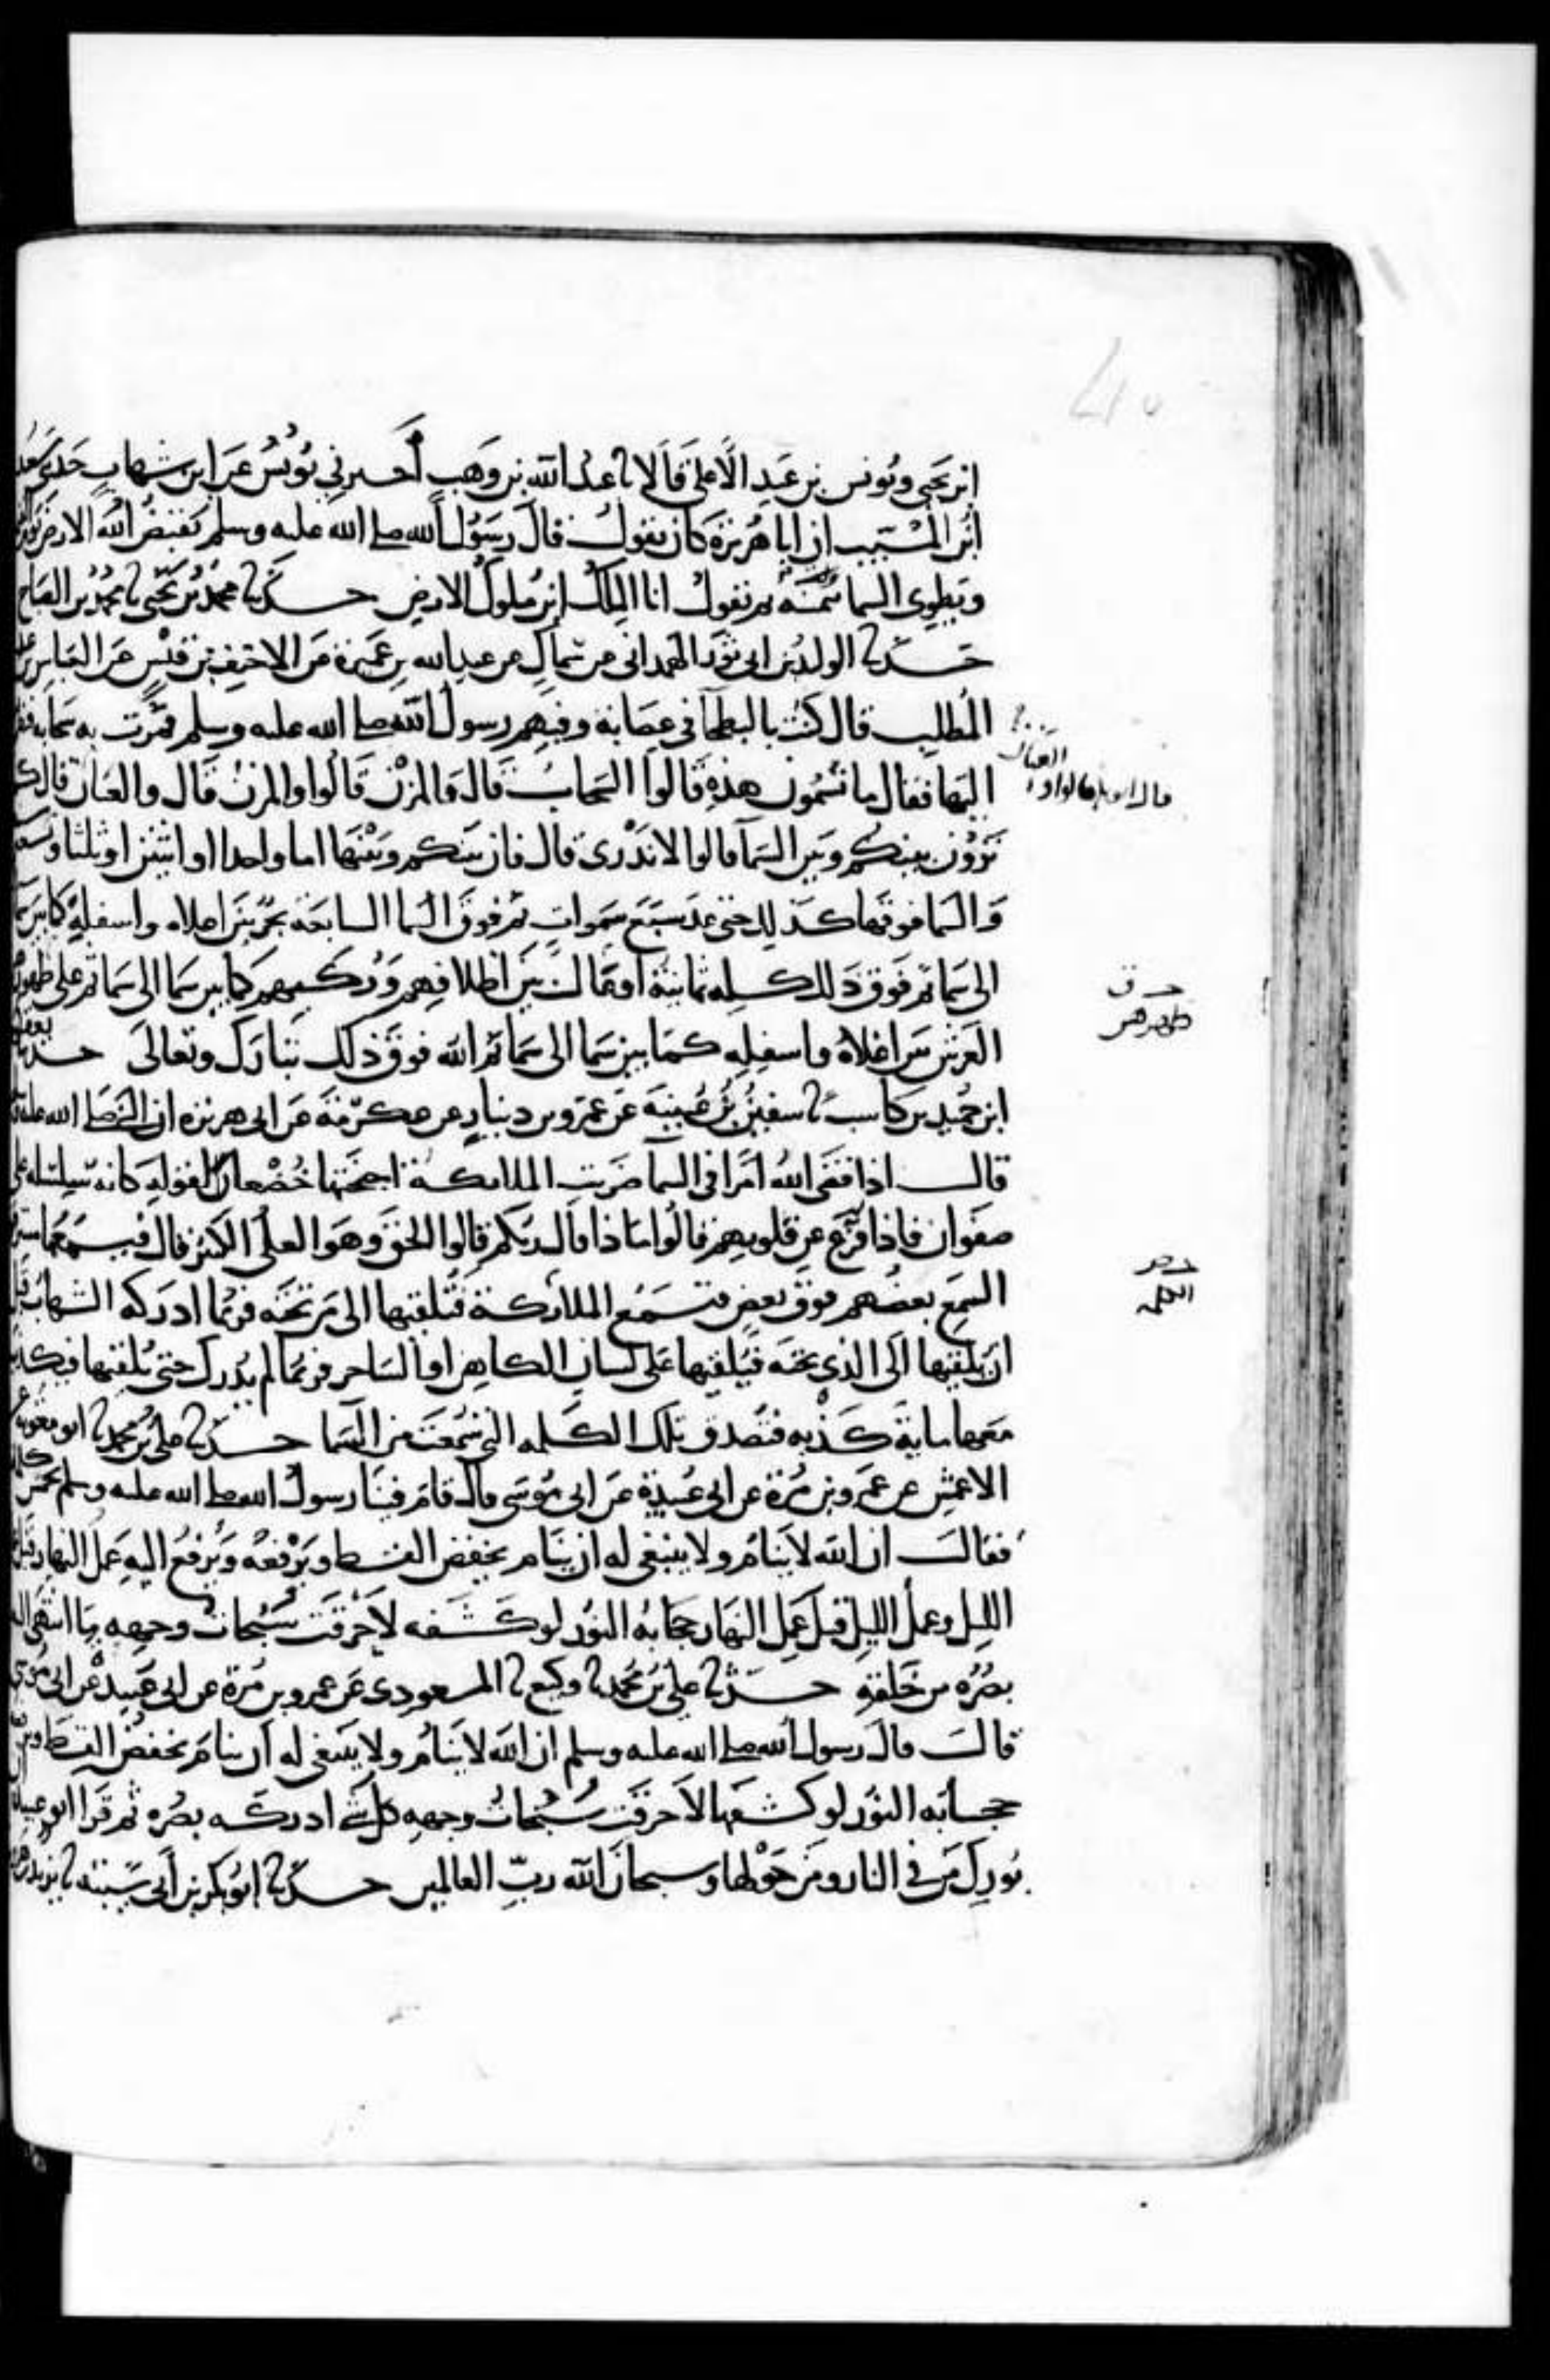 ابن يحيى ويونس بن عبد الأعلى قالا نا عبد الله بن وهب أخبرني يونس عن ابن شهاب حدثني سعيد
ابن المسيب ان ابا هريرة كان يقول قال رسول الله صلى الله عليه وسلم يقبض الله الارض يوم
ويطوي السما بيمينه ثم يقول انا الملك اين ملوك الارض حدثنا محمد بن يحيى نا محمد بن الصباح
حدثنا الوليد بن ابي ثور الهمداني عن سماك عن عبد الله بن عميرة عن الاحنف بن قيس عن العباس بن
المطلب قال كنت بالبطحا في عصابة وفيهم رسول الله صلى الله عليه وسلم فمرت به سحابة فنظر
اليها فقال ما تسمون هذه قالوا السحاب قال والمزن قالوا والمزن قال والعنان قال كم
ترون بينكم وبين السما قالوا لا ندري قال فان بينكم وبينها اما واحدا او اثنين او ثلثا وسبعين
والسما فوقها كذلك حتى عد سبع سموات ثم فوق السما السابعة بحر بين اعلاه واسفله كما بين سما
الى سما ثم فوق ذلك كله ثمانية اوعال بين اظلافهم وركبهم كما بين سما الى سما ثم على ظهورهم
العرش بين اعلاه واسفله كما بين سما الى سما ثم الله فوق ذلك تبارك وتعالى حدثنا يعقوب
ابن حميد بن كاسب نا سفين بن عيينة عن عمرو بن دينار عن عكرمة عن ابي هريرة ان النبي صلى الله عليه
قال اذا قضى الله امرا في السما ضربت الملائكة اجنحتها خضعانا لقوله كانه سلسلة على
صفوان فاذا فزع عن قلوبهم قالوا ماذا قال ربكم قالوا الحق وهو العلي الكبير قال فيسمعها مسترقو
السمع بعضهم فوق بعض فتسمع الملائكة فتلقيها الى من تحته فربما ادركه الشهاب قبل
ان يلقيها الى الذي تحته فيلقيها على لسان الكاهن او الساحر فربما لم يدرك حتى يلقيها فيكذب
معها ماية كذبه فتصدق تلك الكلمه التي سمعت من السما حدثنا علي بن محمد نا ابو معوية عن
الاعمش عن عمرو بن مرة عن ابي عبيدة عن ابي موسى قال قام فينا رسول الله صلى الله عليه وسلم بخمس كلمات
فقال ان الله لا ينام ولا ينبغي له ان ينام يخفض القسط ويرفعه ويرفع اليه عمل النهار قبل عمل
الليل وعمل الليل قبل عمل النهار حجابه النور لو كشفه لاحرقت سبحات وجهه ما انتهى اليه
بصره من خلقه حدثنا علي بن محمد نا وكيع نا المسعودي عن عمرو بن مرة عن ابي عبيدة عن ابي موسى
قال قال رسول الله صلى الله عليه وسلم ان الله لا ينام ولا ينبغي له ان ينام يخفض القسط ويرفعه
حجابه النور لو كشفها لاحرقت سبحات وجهه كل شي ادركه بصره ثم قرا ابو عبيدة ان
بورك من في النار ومن حولها وسبحان الله رب العالمين حدثنا ابو بكر بن ابي شيبة نا يزيد بن هرون
العنان
قال ابو بكر قالوا و
ظهورهم
الكلمه